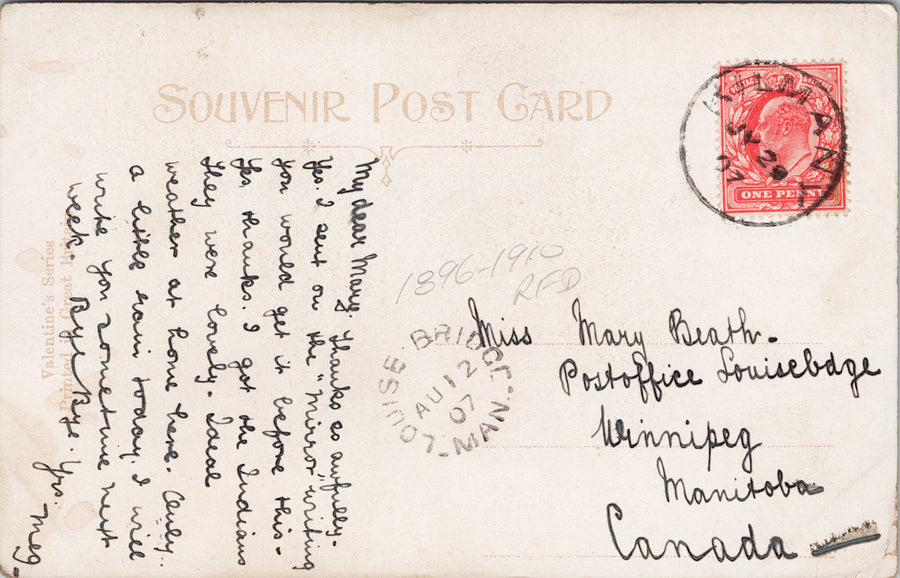 SOUVENIR POST CARD
My dear Mary. Thanks es awfully.
Yes. I sent on the "Mirror" writing
you would get it before this -
Yes, thanks. I got the Indians
They were lovely. Ideal
weather at home here. Only
a little rain today. I will
write you sometime next
week. Bye Bye. Yrs. Meg -
Valentine's Series
Printed in Great Britain
KILMANY
JY 29
07
POSTAGE REVENUE
ONE PENNY
1896-1910
RFD
LOUISE BRIDGE
AU 12
07
MAN.
Miss Mary Beath -
Postoffice Louisebdge
Winnipeg
Manitoba
Canada